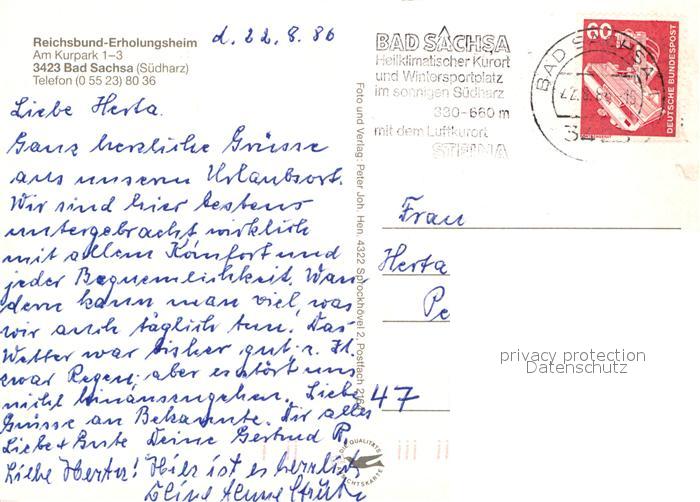 Reichsbund-Erholungsheim
Am Kurpark 1–3
3423 Bad Sachsa (Südharz)
Telefon (0 55 23) 80 36
d. 22.8.86
Liebe Herta.
Ganz herzliche Grüsse
aus unserem Urlaubsort.
Wir sind hier bestens
untergebracht wirklich
mit allem Komfort und
jeder Bequemlichkeit. Wan
dern kann man viel, was
wir auch täglich tun. Das
Wetter war bisher gut, z. Zt.
zwar Regen, aber es stört uns
nicht hinauszugehen. Liebe
Grüsse an Bekannte. Dir alles
Liebe + Gute Deine Gertrud R
Liebe Herta! Hier ist es herrlich
Deine
BAD SACHSA
Heilklimatischer Kurort
und Wintersportplatz
im sonnigen Südharz
330-660 m
mit dem Luftkurort
STEINA
BAD SACHSA
22.8.86
60
DEUTSCHE BUNDESPOST
Foto und Verlag: Peter Joh. Hen, 4322 Sprockhövel 2, Postfach
Frau
Herta
Pe
47
privacy protection
Datenschutz
DIE QUALITÄTS